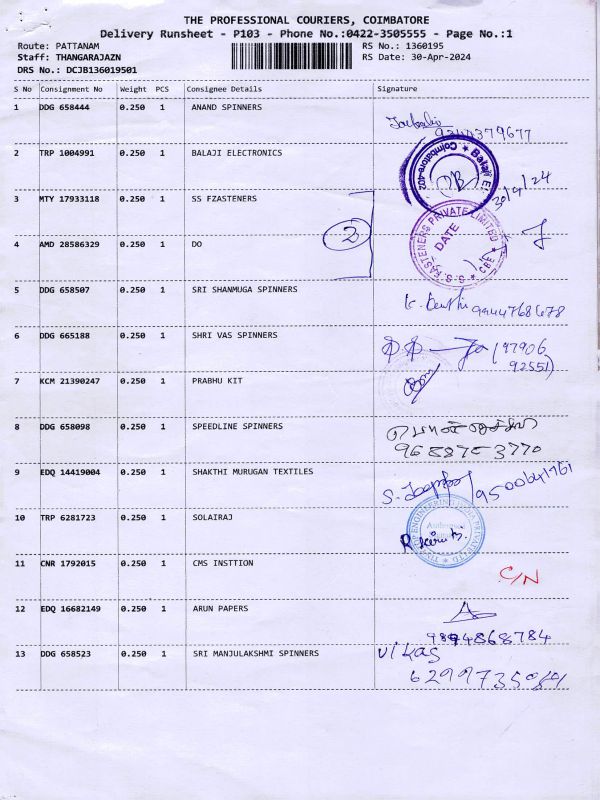 THE PROFESSIONAL COURIERS, COIMBATORE
Delivery Runsheet - P103 - Phone No.:0422-3505555 - Page No.:1
Route: PATTANAM RS No.: 1360195
Staff: THANGARAJAZN RS Date: 30-Apr-2024
DRS No.: DCJB136019501
S No Consignment No Weight PCS Consignee Details Signature
1 DDG 658444 0.250 1 ANAND SPINNERS
9344379677
2 TRP 1004991 0.250 1 BALAJI ELECTRONICS
Balaji E
Coimbatore-402
30/4/24
3 MTY 17933118 0.250 1 SS FZASTENERS
2
4 AMD 28586329 0.250 1 DO
S.S. FASTENERS PRIVATE LIMITED
DATE
CBE
5 DDG 658507 0.250 1 SRI SHANMUGA SPINNERS
9444768678
6 DDG 665188 0.250 1 SHRI VAS SPINNERS
(97906
92551)
7 KCM 21390247 0.250 1 PRABHU KIT
8 DDG 658098 0.250 1 SPEEDLINE SPINNERS
9 EDQ 14419004 0.250 1 SHAKTHI MURUGAN TEXTILES
10 TRP 6281723 0.250 1 SOLAIRAJ
11 CNR 1792015 0.250 1 CMS INSTTION
C/N
12 EDQ 16682149 0.250 1 ARUN PAPERS
9894868784
13 DDG 658523 0.250 1 SRI MANJULAKSHMI SPINNERS
vikas